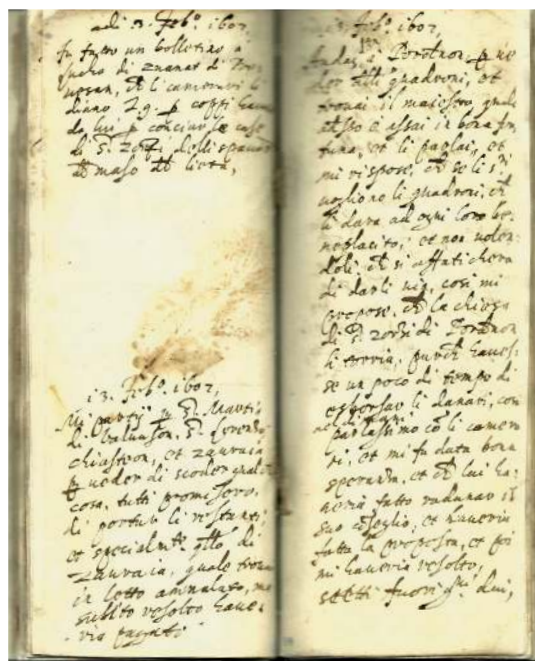 adi 3. feb.º 1607,
fu fatto un bollettino a
quello di Zuanat di
che li camerari li
diano ... p coppi
da lui p conciar le case
di S. Zorzi delli
13. feb.º 1607,
Mi partij p S. Martin
di Valvason, S. Lorenzo
chiastion, et Zauraia
p veder di scoder qualche
cosa, tutti promisero,
di portar li restanti,
et specialmte qllo di
Zauraia, quale trovai
in letto ammalato, ma
subito resolto have-
ria pagato
feb.º 1607,
Andai à Pordenon, p ve
der delli quadroni, et
trovai il maiestro quale
adesso è assai in bona for
tuna, et li parlai, et
mi rispose, che se li ss.ri
vogliono li quadroni, che
li dara ad ogni loro be-
neplacito; et non volen-
doli, che si affatichera
di darli via, cosi mi
propose, che la chiesa
di S. Zorzi di Pordenon
li torria, purche haves-
se un poco di tempo di
esborsar li danari, cosi
parlassimo cō li camera
ri, et mi fu data bona
speranza, et che lui ha-
veria fatto radunar il
suo cōseglio, et n'averia
fatta la proposta, et poi
mi haveria resolto,
stetti fuori gni dui,